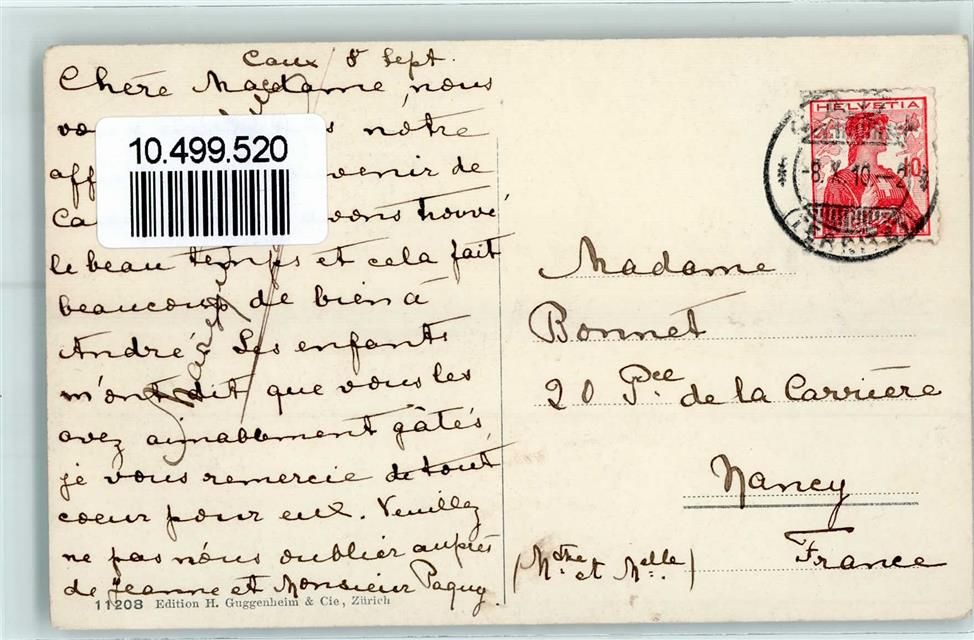 Caux 8 Sept.
Chère Madame, nous
notre
aff venir de
Ca vons trouvé
le beau temps et cela fait
beaucoup de bien à
André. Les enfants
m'ont dit que vous les
avez aimablement gâtés,
je vous remercie de tout
coeur pour eux. Veuillez
ne pas nous oublier auprès
de Jeanne et Monsieur Paquy.
10.499.520
11208 Edition H. Guggenheim & Cie, Zürich
HELVETIA
10
-8.X.10.-
Madame
Bonnet
20 Pce. de la Carrière
Nancy
France
(Mthe et Melle.)